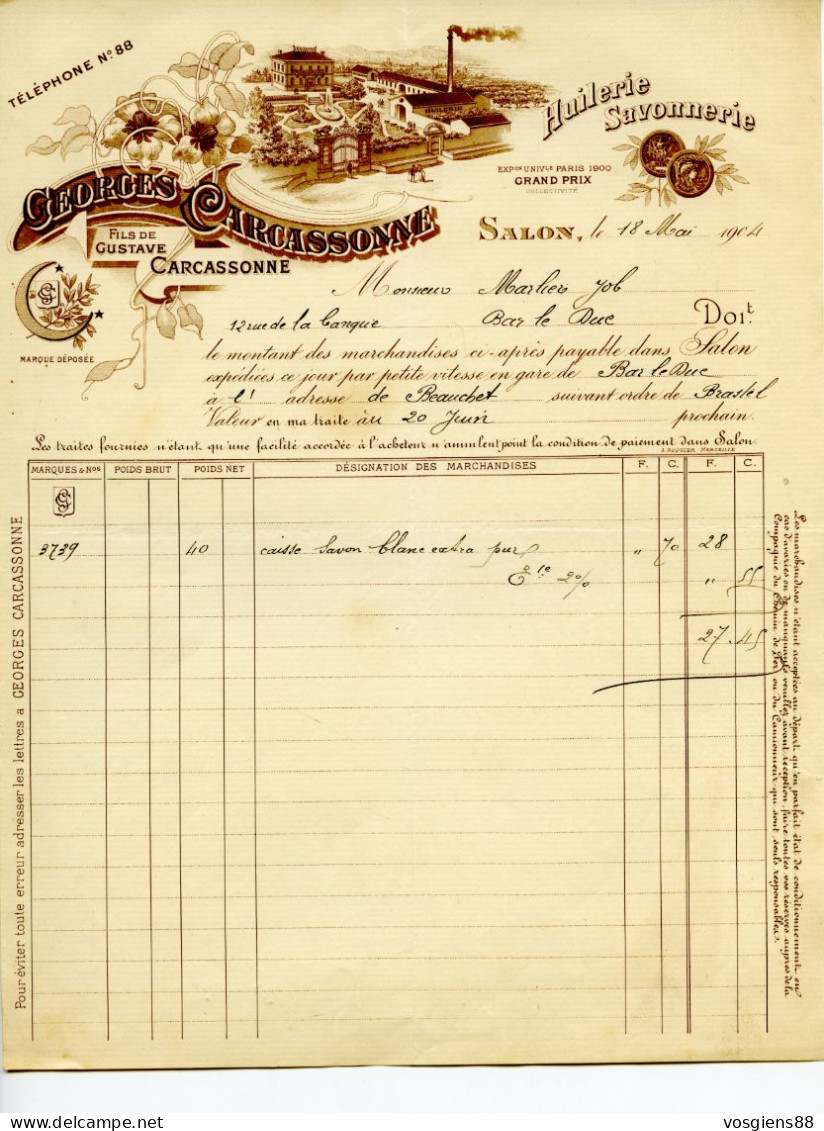 TÉLÉPHONE No. 88
HUILERIE
Huilerie
Savonnerie
EXPon UNIVLE PARIS 1900
GRAND PRIX
COLLECTIVITÉ
GEORGES CARCASSONNE
FILS DE
GUSTAVE
CARCASSONNE
GC
MARQUE DÉPOSÉE
SALON, le 18 Mai 1904
Monsieur Marlier Job
12 rue de la Banque Bar le Duc Doit
le montant des marchandises ci-après payable dans Salon
expédiées ce jour par petite vitesse en gare de Bar le Duc
à l' adresse de Beauchet suivant ordre de Brastel
Valeur en ma traite au 20 Juin prochain.
Les traites fournies n'étant qu'une facilité accordée à l'acheteur n'annulent point la condition de paiement dans Salon
MARQUES & Nos POIDS BRUT POIDS NET DÉSIGNATION DES MARCHANDISES F. C. F. C.
GC
3739 40 caisse savon blanc extra pur " 70 28
Ete 2% " 55
27.45
Pour éviter toute erreur adresser les lettres a GEORGES CARCASSONNE
Les marchandises n'étant acceptées au départ qu'en parfait état de conditionnement, en
cas d'avaries ou de manquants veuillez avant réception, faire toutes vos réserves auprès de la
Compagnie du Chemin de Fer ou du Camionneur qui sont seuls responsables.
vosgiens88